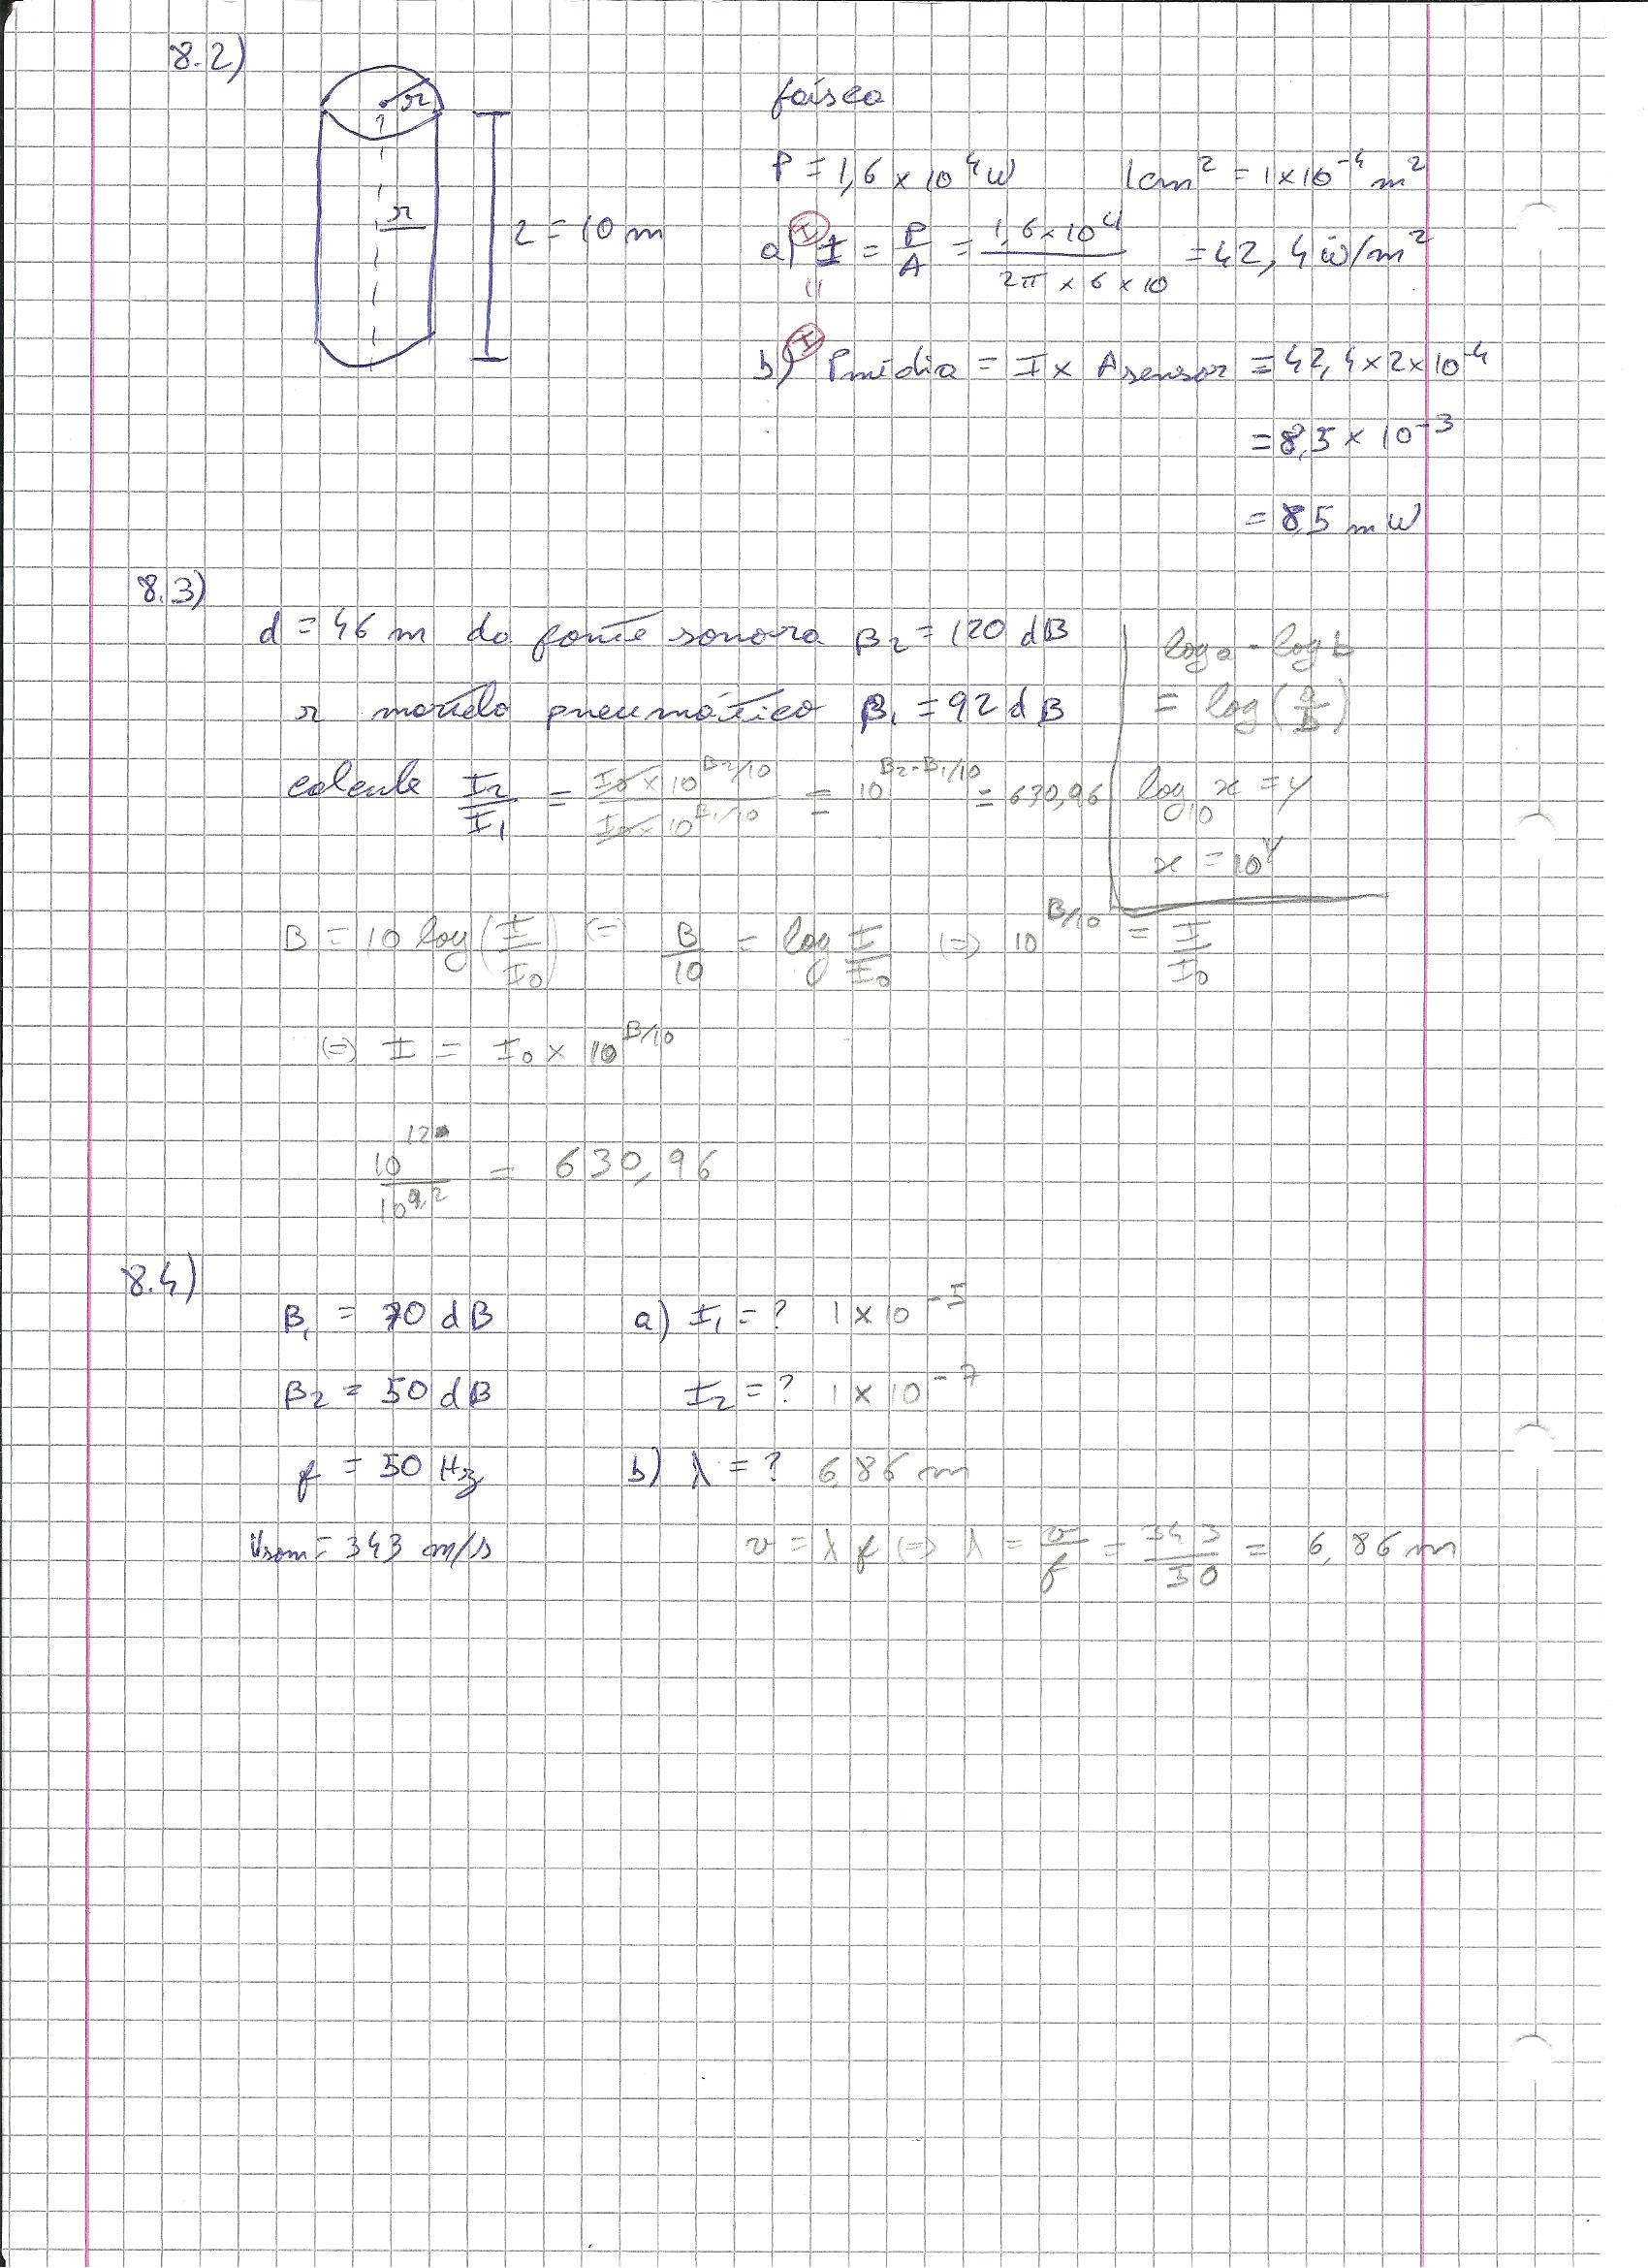 8.2)
r
r
2 = 10 m
faísca
P = 1,6 × 10⁴ W 1 cm² = 1×10⁻⁴ m²
a) I = P/A = 1,6×10⁴ / 2π × 6 × 10 = 42,4 W/m²
b) Pmédia = I × Asensor = 42,4 × 2 × 10⁻⁴
= 8,5 × 10⁻³
= 8,5 mW
8.3)
d = 46 m da fonte sonora B₂ = 120 dB
r martelo pneumático B₁ = 92 dB
calcule I₂/I₁ = I₀ × 10^B₂/10 / I₀ × 10^B₁/10 = 10^B₂-B₁/10 = 630,96
log a - log b
= log (a/b)
log₁₀ x = y
x = 10^y
B = 10 log (I/I₀) (=) B/10 = log I/I₀ (=) 10^B/10 = I/I₀
(=) I = I₀ × 10^B/10
10^12 / 10^9,2 = 630,96
8.4)
B₁ = 70 dB a) I₁ = ? 1 × 10⁻⁵
B₂ = 50 dB I₂ = ? 1 × 10⁻⁷
f = 50 Hz b) λ = ? 6,86 m
Vsom = 343 m/s v = λ f (=) λ = v/f = 343/50 = 6,86 m